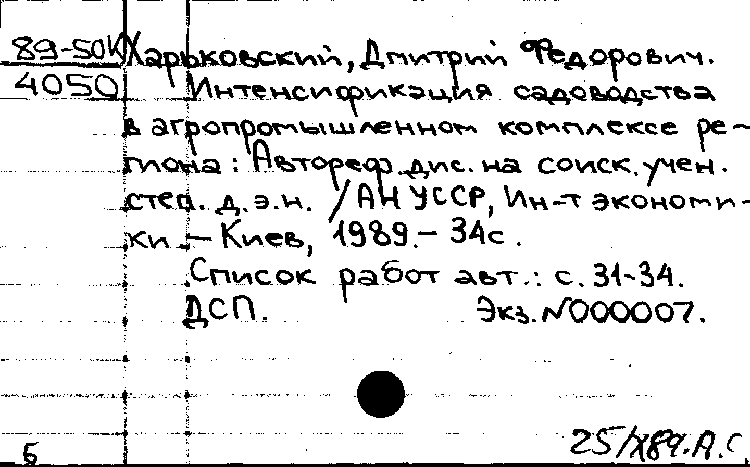 89-50К Харьковский, Дмитрий Федорович.
4050 Интенсификация садоводства
в агропромышленном комплексе ре-
гиона: Автореф. дис. на соиск. учен.
степ. д.э.н. /АН УССР, Ин-т экономи-
ки. – Киев, 1989. – 34с.
Список работ авт.: с. 31-34.
ДСП. Экз. N000007.
25/X89. А.С.
Б